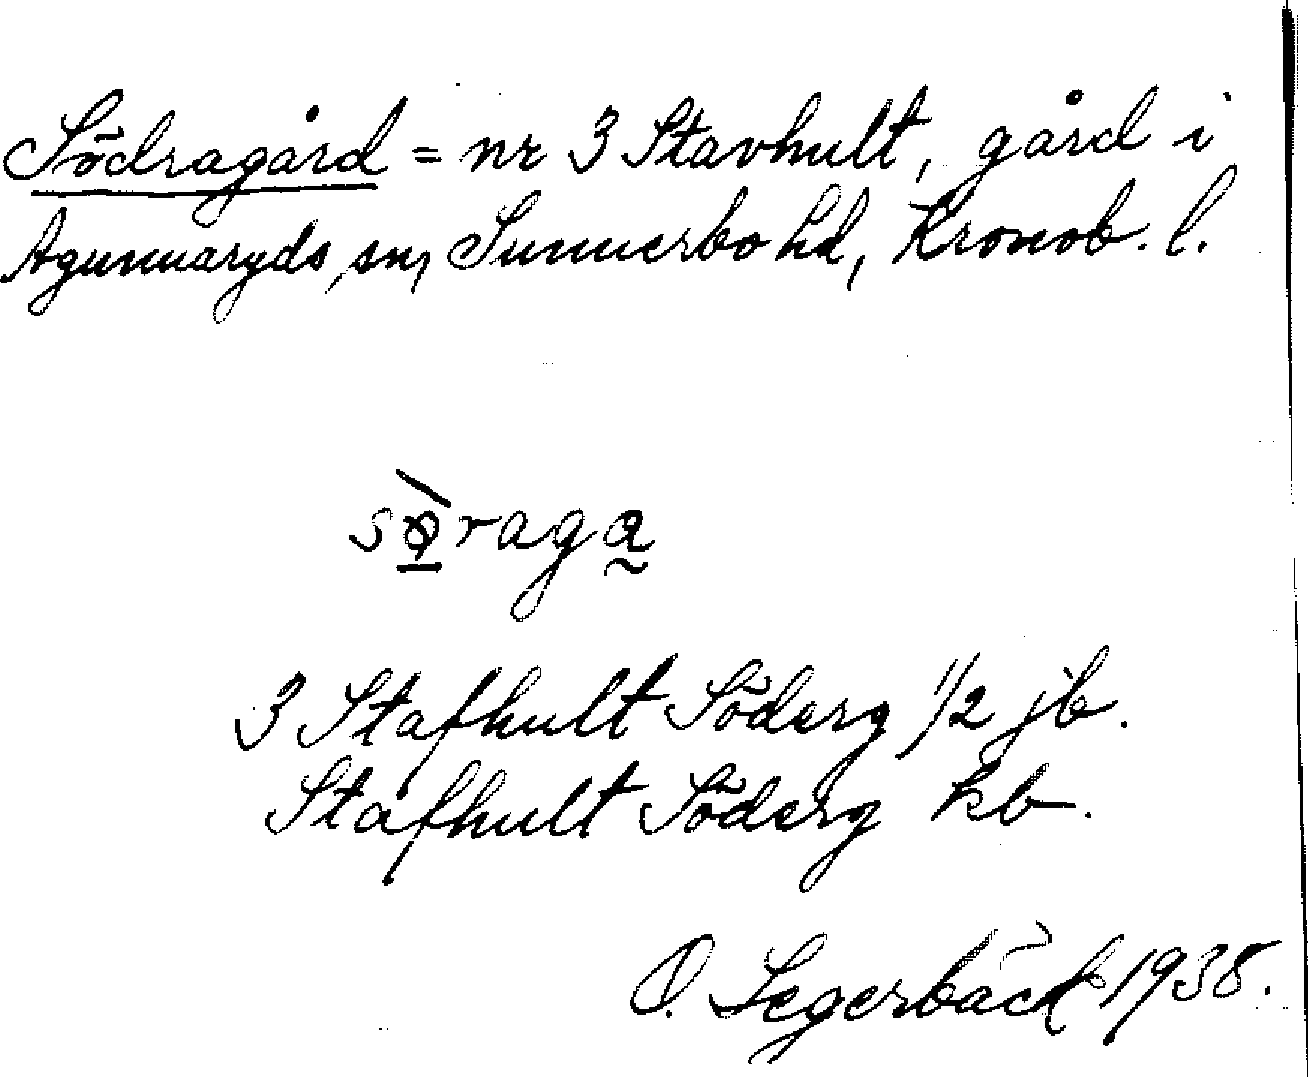 Södragård = nr 3 Stavhult, gård i
Agunnaryds sn, Sunnerbo hd, Kronob. l.
sø̀raga
3 Stafhult Söderg 1/2 jb.
Stafhult Söderg kb.
O. Segerbäck 1938.